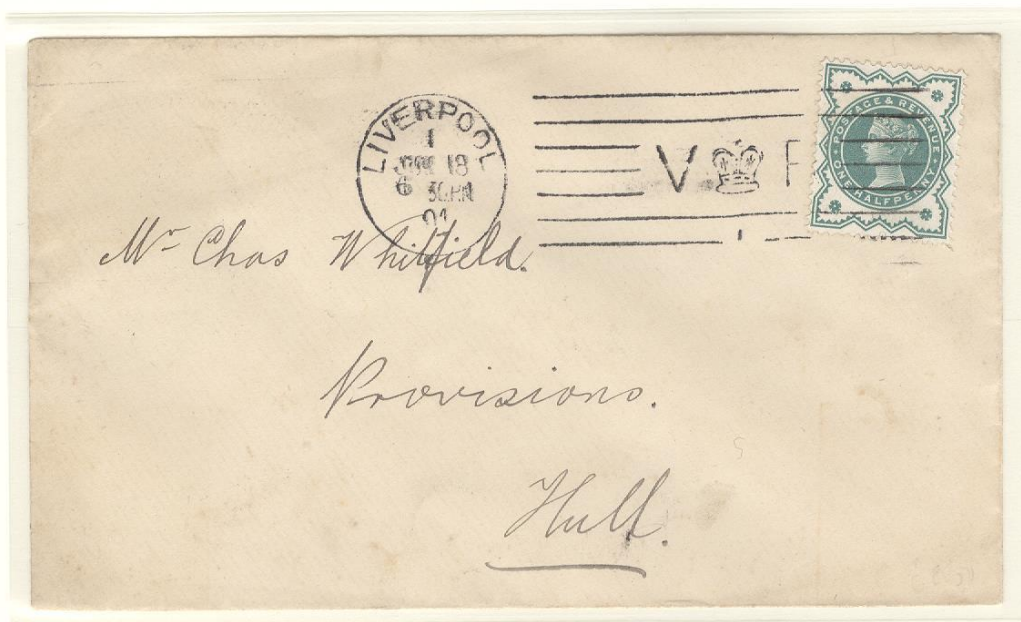 LIVERPOOL
1
JUN 18
6 30PM
01
V R
POSTAGE & REVENUE
ONE HALFPENNY
Mr Chas Whitfield.
Provisions.
Hull.